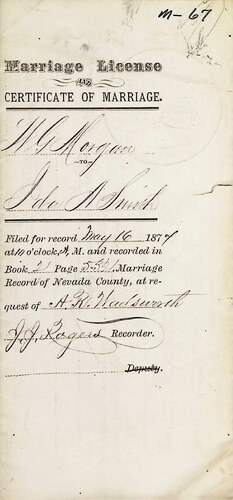 M-67
Marriage License
AND
CERTIFICATE OF MARRIAGE.
W. G. Morgan
TO
Ida A. Smith
Filed for record May 16 1877
at 10 o'clock, A. M. and recorded in
Book Page Marriage
Record of Nevada County, at re-
quest of A. R. Wadsworth
J. J. Rogers Recorder.
Deputy.